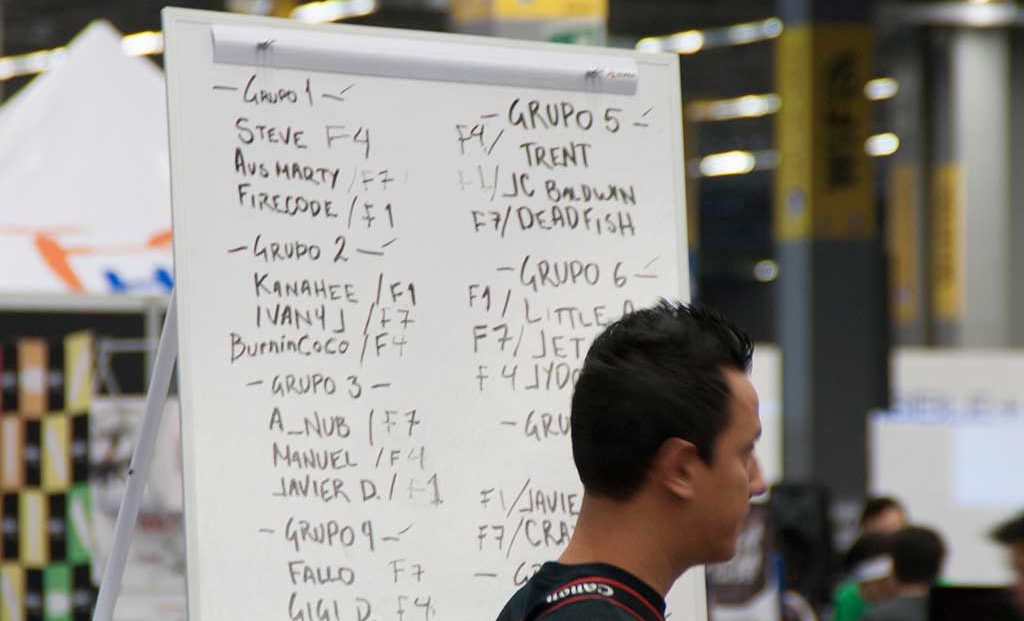 - GRUPO 1 -
STEVE F4
AUSMARTY / F7
FIRECODE / F1
- GRUPO 2 -
KANAHEE / F1
IVANYJ / F7
BurninCoco / F4
- GRUPO 3 -
A_NUB / F7
MANUEL / F4
JAVIER D. / F1
- GRUPO 4 -
FALLO F7
GIGI D. F4
- GRUPO 5 -
F4/ TRENT
JC BALDWIN
F7/DEADFISH
- GRUPO 6 -
F1/ LITTLE
F7/ JET
F4 JYDO
- GRU
F1/JAVIE
F7/CRA
- G
Canon